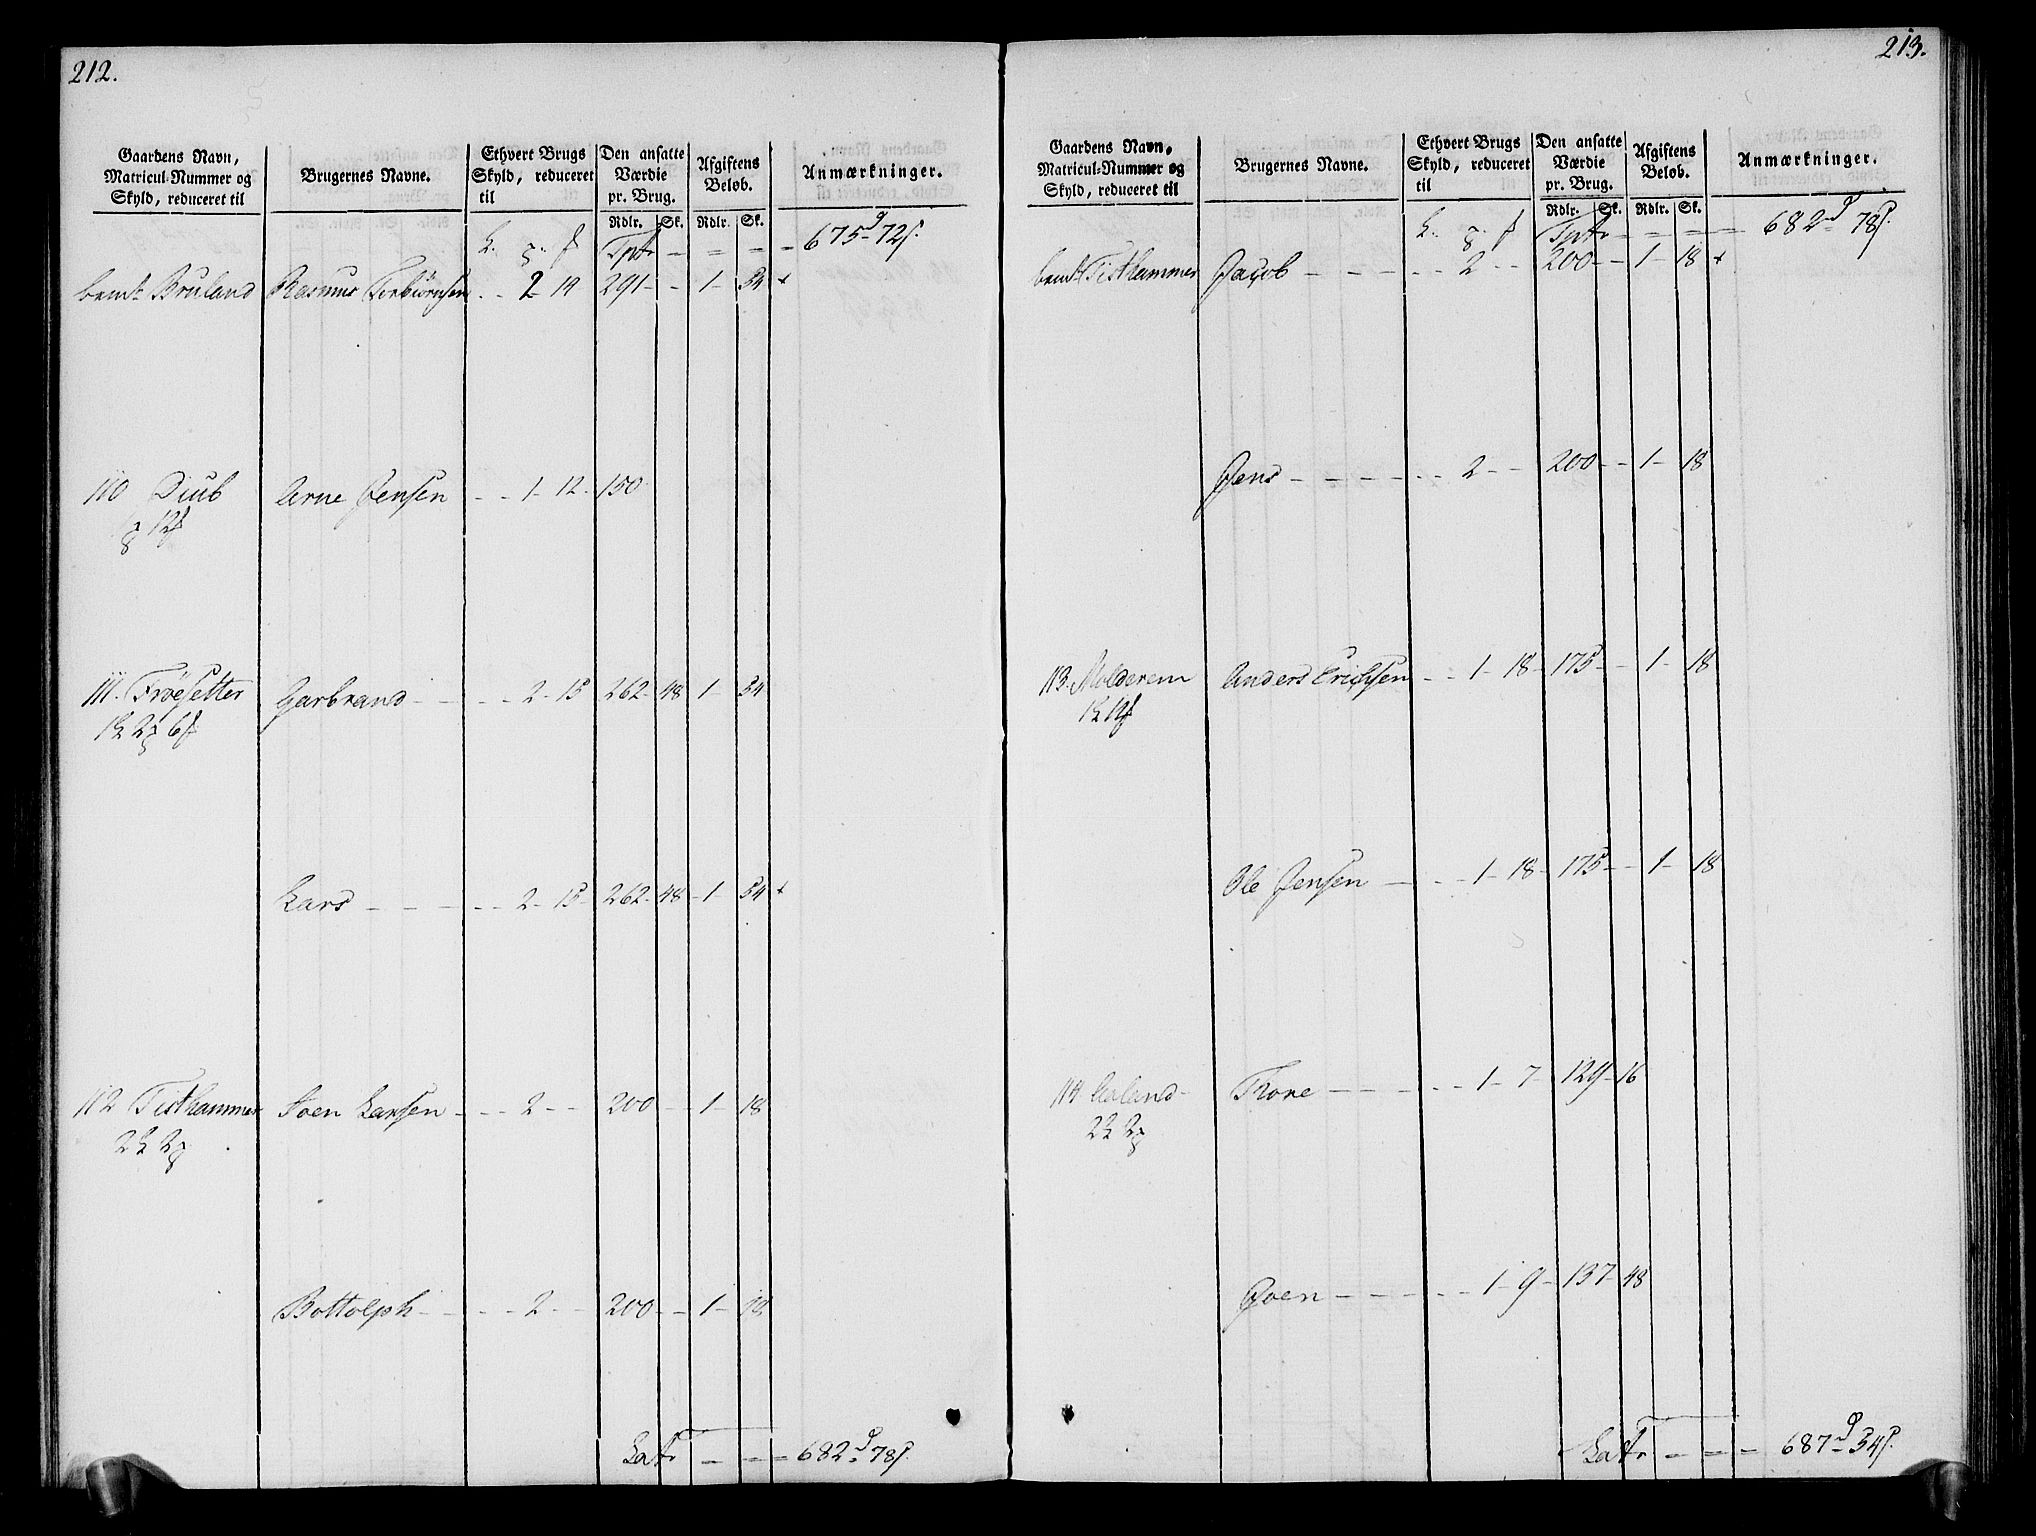 212.
Gaardens Navn, Matricul-Nummer og Skyld, reduceret til
Brugernes Navne.
Ethvert Brugs Skyld, reduceret til
Den ansatte Værdie pr. Brug.
Afgiftens Beløb.
Anmærkninger.
Rdlr. Sk. Rdlr. Sk.
Tptr - = = = 675 - 72
bemt Bruland Rasmus Torbiörnsen - - 2 - 19 291 - - 1 - 54 +
110 Diub Arne Jensen - - 1 - 12 - 150
12
111. Fröesetter Garbrand - - - - 2 - 15 262 - 48 - 1 - 54
Lars - - - - - 2 - 15 - 262 - 48 - 1 - 54 +
112 Tisthammer Joen Larsen - - - 2 - - 200 - - 1 - 18
Bottolph - - - - 2 - - 200 - - 1 - 18
Latr - = = 682 - 78
213.
Gaardens Navn, Matricul-Nummer og Skyld, reduceret til
Brugernes Navne.
Ethvert Brugs Skyld, reduceret til
Den ansatte Værdie pr. Brug.
Afgiftens Beløb.
Anmærkninger.
Rdlr. Sk. Rdlr. Sk.
Tptr - = = = 682 - 78
bemt Tisthammer Jacob - - - - - 2 - - 200 - - 1 - 18 +
Jens - - - - - - 2 - - 200 - - 1 - 18
113. Molderem Anders Erichsen - - 1 - 18 - 175 - - 1 - 18
Ole Jensen - - - 1 - 18 - 175 - - 1 - 18
114 Aaland - Thore - - - - - 1 - 7 - 129 - 16
Joen - - - - - 1 - 9 - 137 - 48
Latr - = = - 687 - 54